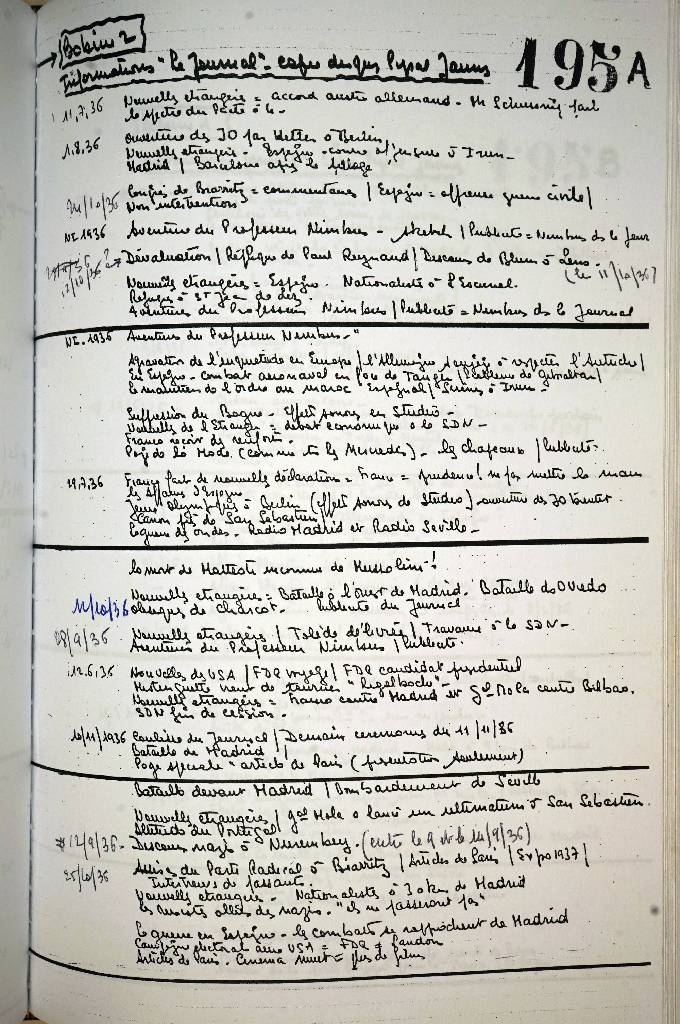 Bobine 2
195 A
Informations "Le Journal"
11,7,36 Nouvelles étrangères = accord austro allemand - Mr Schussnig fait
le spectre du Pacte à 4 -
1.8,36 Ouverture des JO par Hitler à Berlin
Nouvelles étrangères - Espagne à Irun -
Madrid / Barcelone après le pillage
24/10/36 Congrès de Biarritz = commentaires / Espagne = affreuse guerre civile /
Non intervention
NI 1936 Aventure du Professeur Nimbus - sketch / Publicité = Nimbus ds le Jour
12/10/36 ? → Dévaluation / Réplique de Paul Reynaud / Discours de Blum à Lens. (le 11/10/36?)
Nouvelles étrangères = Espagne. Nationaliste à l'Escurial.
Refugiés à St Jean de Luz.
Aventures du Professeur Nimbus / Publicité = Nimbus ds le Journal
NI. 1936 Aventures du Professeur Nimbus - "
Agravation de l'inquiétude en Europe / l'Allemagne à respecter l'Autriche /
En Espagne - Combat aéronaval en face de Tanger / Problème de Gibraltar /
le maintien de l'ordre au Maroc Espagnol / à Irun -
Suppression du Bagne - Effets sonores en Studio -
Nouvelles de l'Etranger = débat économique à la SDN -
Franco reçoit des renforts -
Page de la Mode (comme ts les Mercredis) - les chapeaux / Publicité -
19,7,36 France fait de nouvelles déclarations = France = prudence ! ne pas mettre la main
ds affaires d'Espagne -
Jeux Olympiques à Berlin (effets sonores de Studio) ouverture des JO
Canon près de San Sebastien /
La guerre des ondes - Radio Madrid et Radio Seville -
la mort de Matteoti inconnue de Mussolini !
Nouvelles étrangères = Bataille à l'ouest de Madrid. Bataille de Oviedo
11/10/36 obsèques de Charcot. Publicité du Journal
28/9/36 Nouvelles étrangères / Tolède délivrée / Travaux à la SDN -
Aventures du Professeur Nimbus / Publicité.
12.6,36 Nouvelles des USA / FDR voyage / FDR candidat présidentiel
Mistinguette vient de tourner "Rigolboche" -
Nouvelles étrangères = Franco contre Madrid et Gal Mola contre Bilbao.
SDN fin de cession -
10/11/1936 Coulisse du Journal / Demain cérémonies du 11/11/36
Bataille de Madrid /
Page spéciale "article de Paris (présentation seulement)
Bataille devant Madrid / Bombardement de Seville
Nouvelles étrangères / gal Mola a lancé un ultimatum à San Sebastien.
Attitude du Portugal
12/9/36 - Discours nazi à Nuremberg. (entre le 9 et le 14/9/36)
25/10/36 Assises du Parti Radical à Biarritz / Articles de Paris / Expo 1937 /
Interviews de passants.
Nouvelles étrangères - Nationalistes à 30 km de Madrid
les alliés des nazis - "ils ne passeront pas"
La guerre en Espagne - les combats se rapprochent de Madrid
Campagne électorale aux USA = FDR ≠ Landon
Articles de Paris. Cinéma muet = plus de films